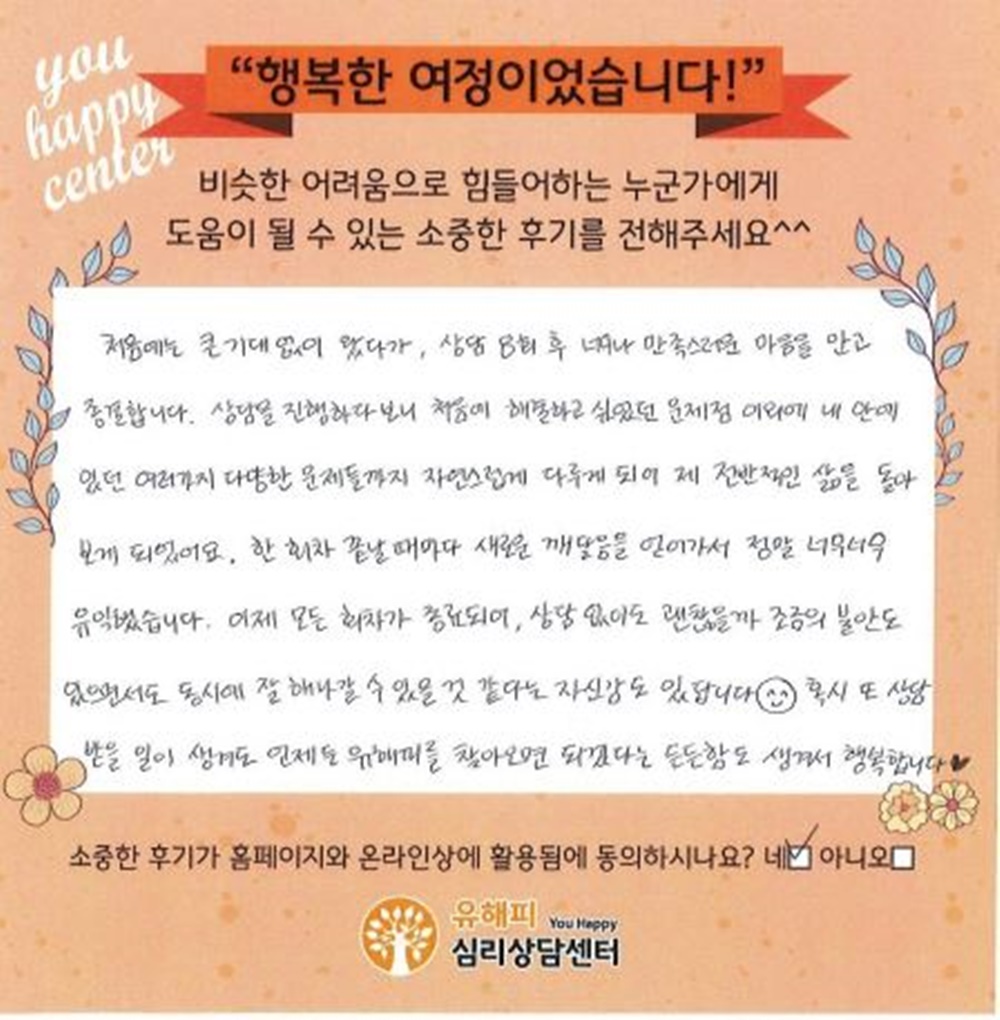 you
happy
center
“행복한 여정이었습니다!”
비슷한 어려움으로 힘들어하는 누군가에게
도움이 될 수 있는 소중한 후기를 전해주세요^^
처음에는 큰 기대 없이 왔다가, 상담 8회 후 너무나 만족스러운 마음을 안고
종결합니다. 상담을 진행하다보니 처음에 해결하고 싶었던 문제점 이외에 내 안에
있던 여러가지 다양한 문제들까지 자연스럽게 다루게 되어 제 전반적인 삶을 돌아
보게 되었어요. 한 회차 끝날 때마다 새로운 깨달음을 얻어가서 정말 너무너무
유익했습니다. 이제 모든 회차가 종료되어, 상담 없이도 괜찮을까 조금의 불안도
있으면서도 동시에 잘 해나갈 수 있을 것 같다는 자신감도 있답니다☺ 혹시 또 상담
받을 일이 생겨도 언제든 유해피를 찾아오면 되겠다는 든든함도 생겨서 행복합니다♥
소중한 후기가 홈페이지와 온라인상에 활용됨에 동의하시나요? 네☑ 아니오☐
유해피 You Happy
심리상담센터